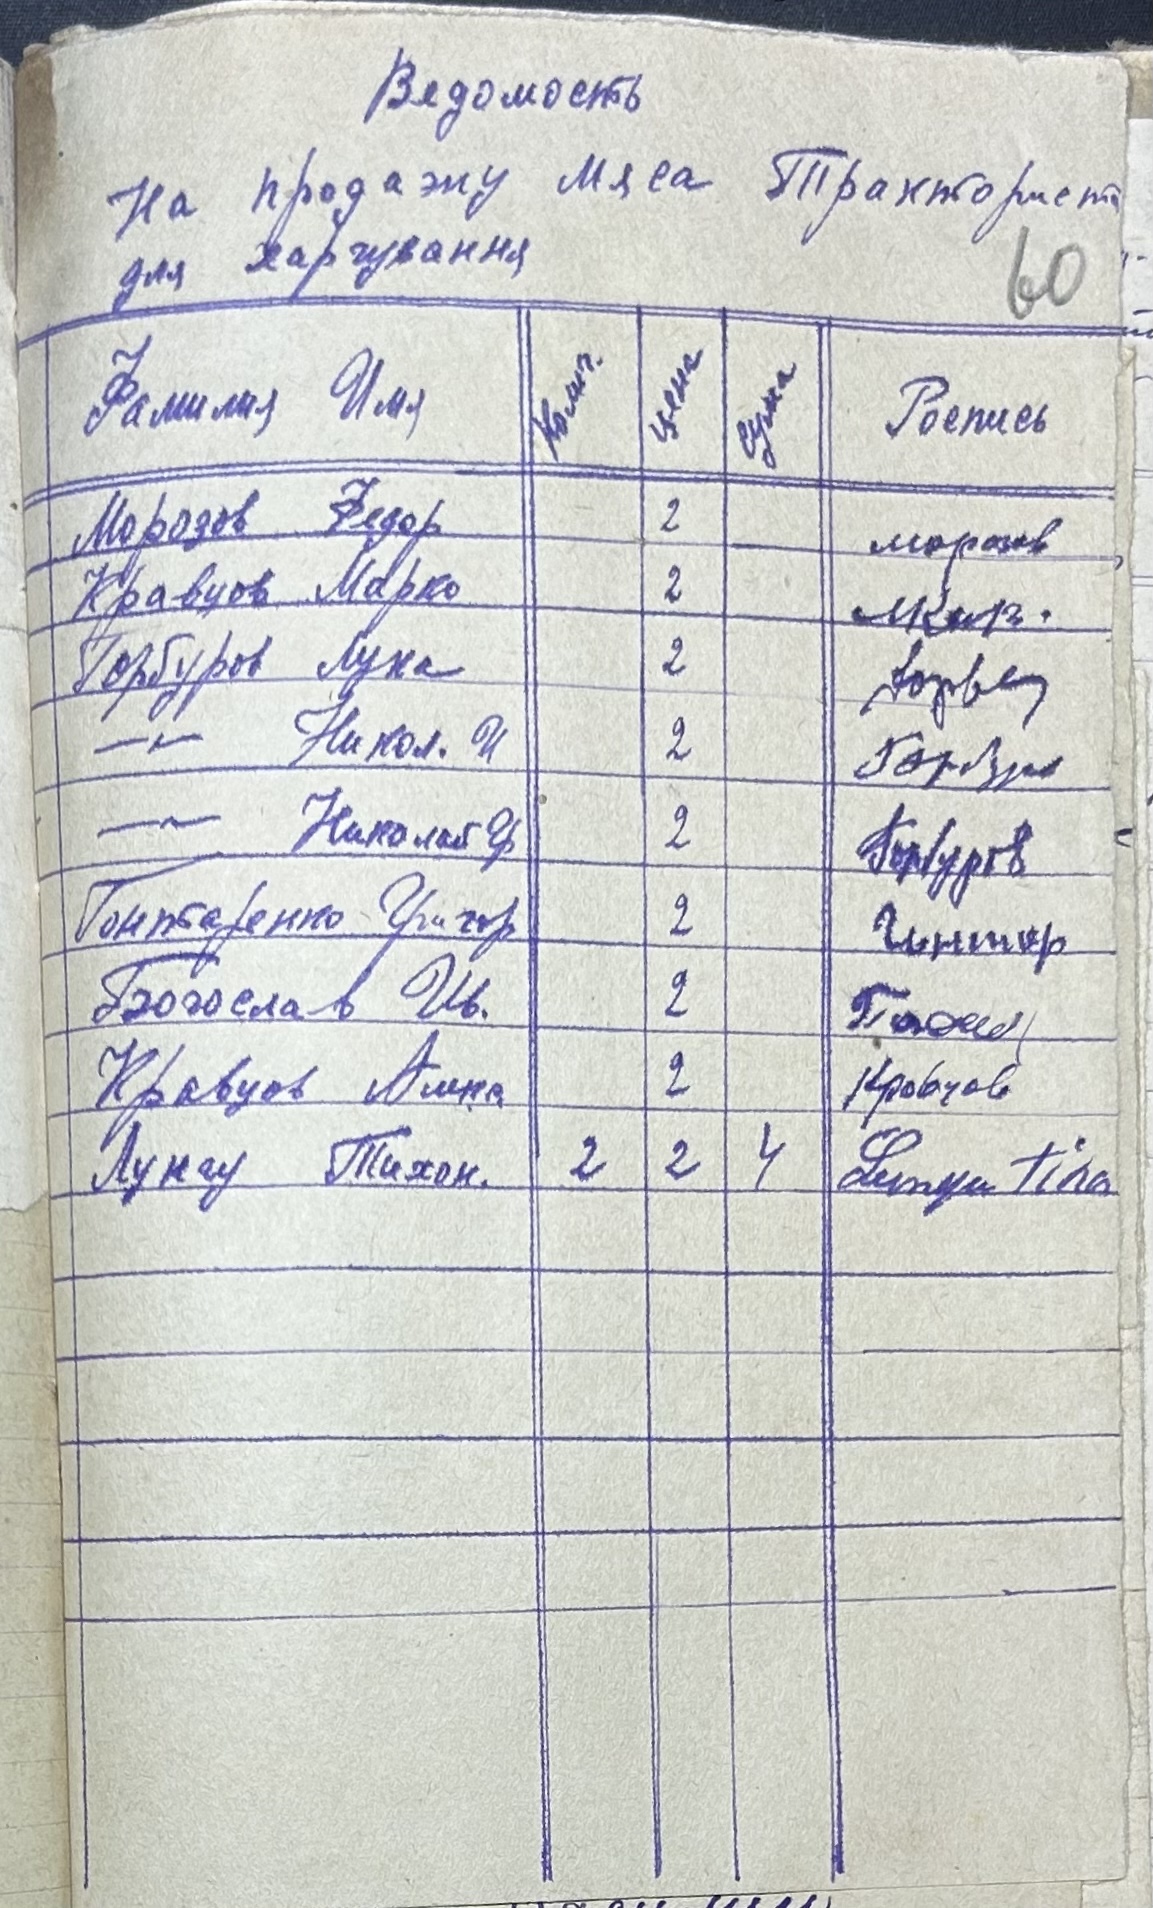 Ведомость
На продажу мяса Тракториста
для харчування
60
Фамилия Имя Колич. цена сума Роспись
Морозов Федор 2 Морозов
Кравцов Марко 2
Горбуров Лука 2
—〃— Никол. И 2
—〃— Николай Ф 2 Горбуров
Гонтаренко Григор 2
Богослав Ив. 2
Кравцов Анна 2 Кровчов
Лунгу Тихон. 2 2 4 Lungu Tihon